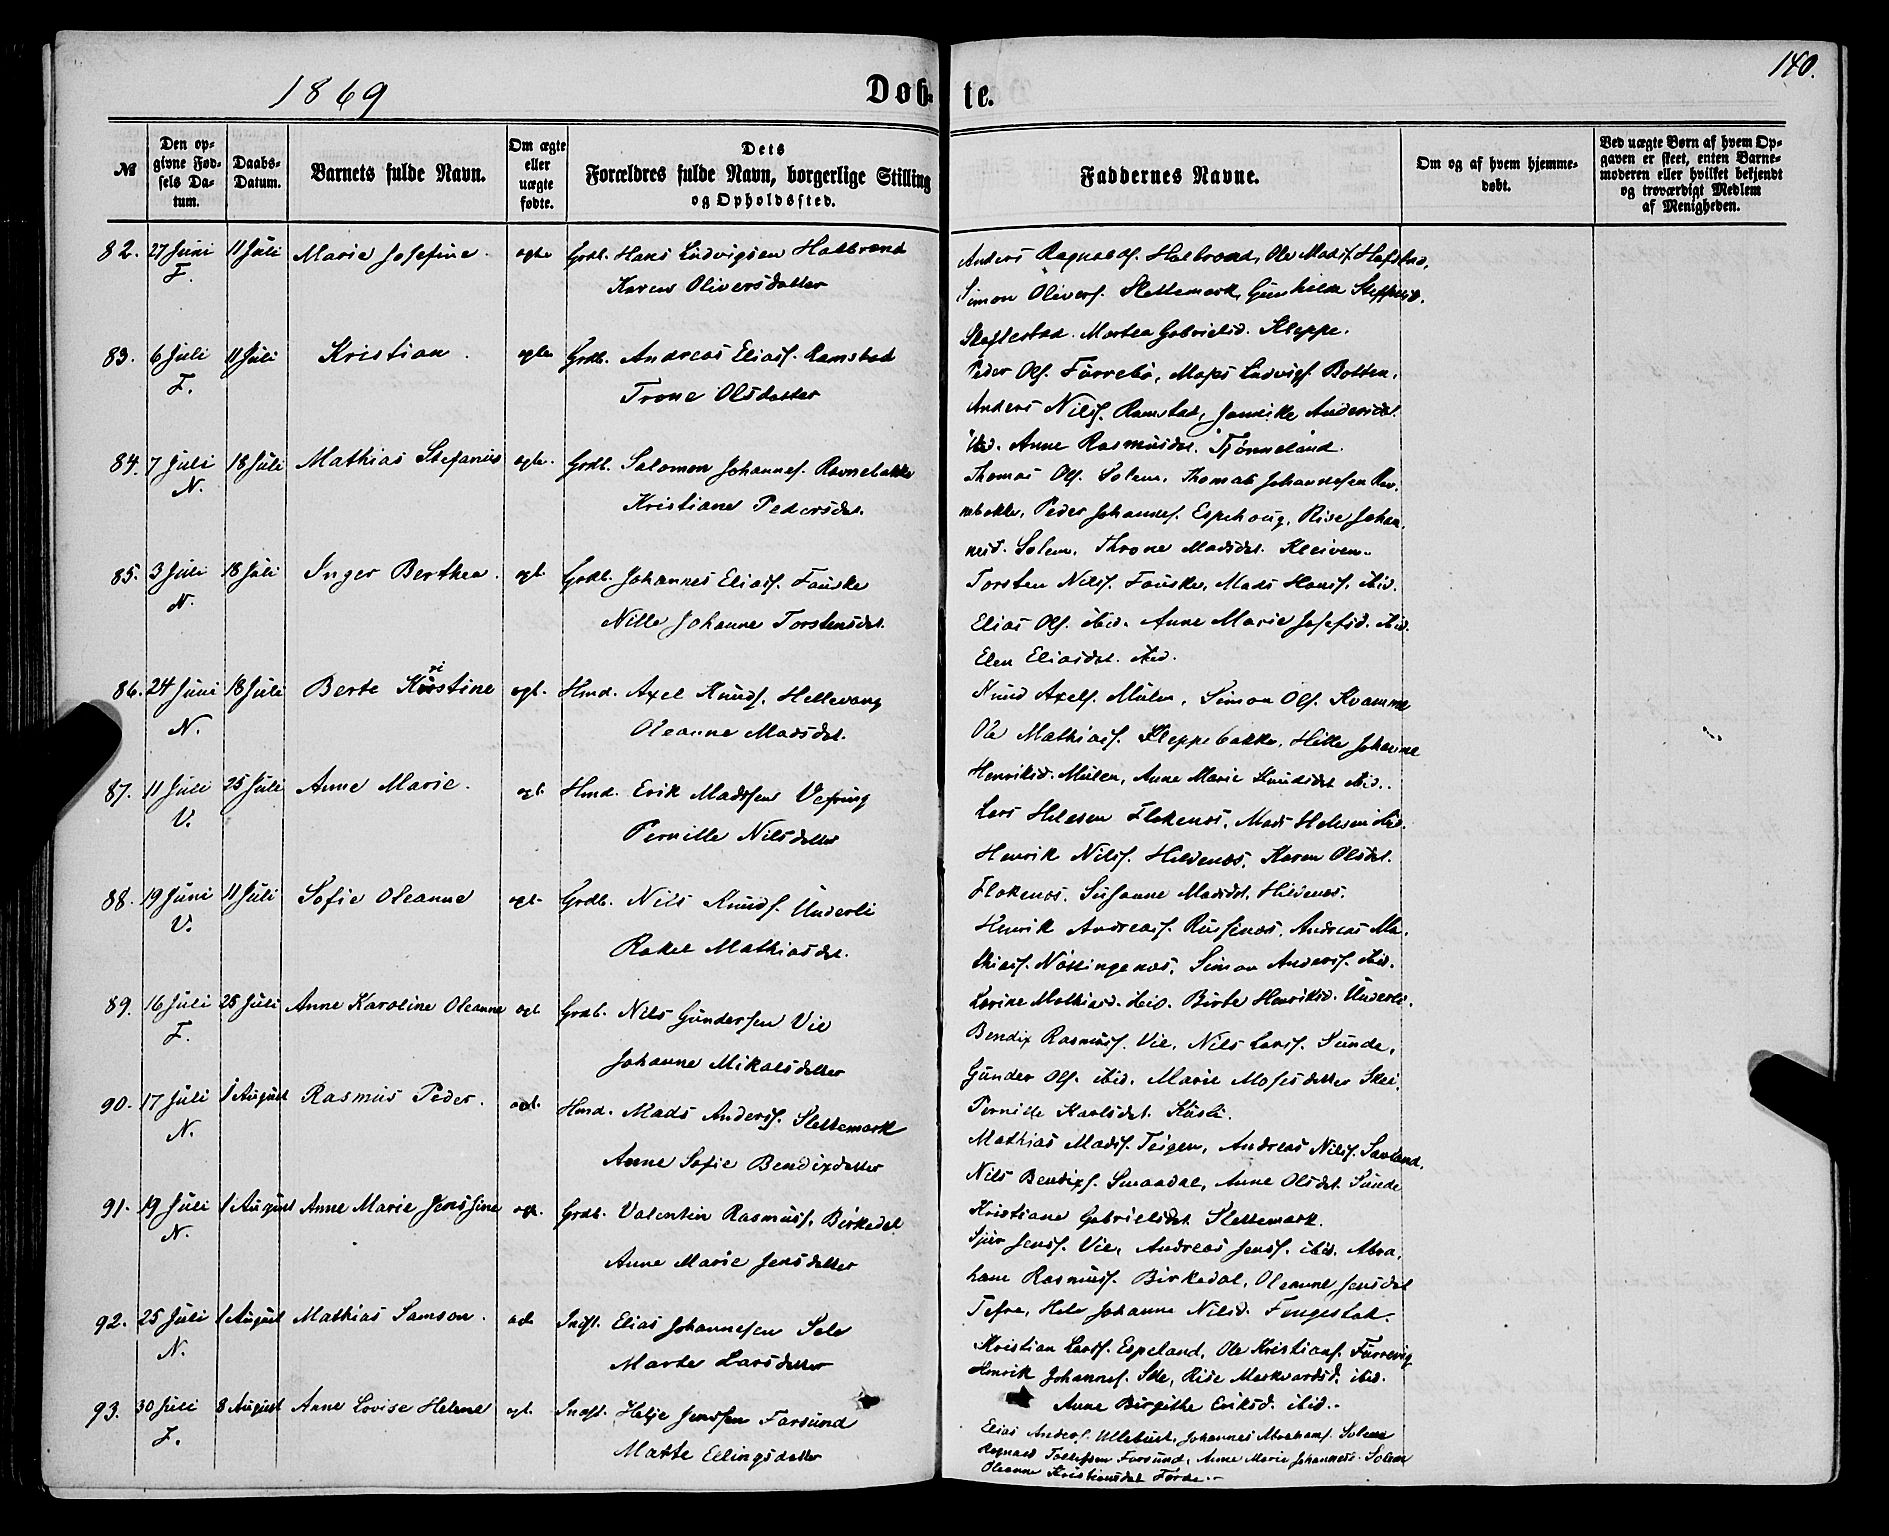 140.
1869
Døb-te.
№
Den opgivne Fødsels Datum.
Daabs-Datum.
Barnets fulde Navn.
Om ægte eller uægte fødte.
Dets Forældres fulde Navn, borgerlige Stilling og Opholdssted.
Faddernes Navne.
Om og af hvem hjemmedøbt.
Ved uægte Børn af hvem Opgaven er skeet, enten Barnemoderen eller hvilket bekjendt og troværdigt Medlem af Menigheden.
82. 27 Juni 11 Juli Marie Josefine. egte Grdb. Hans Ludvigsen Halbrend
F. Karen Oliversdatter
Anders Ragnvaldf. Halbrend, Ole Madsf. Hafstad,
Simon Oliverf. Slettemark, Gunhild Steffensd.
Skeflestad. Martea Gabrielsd. Kleppe.
83. 6 Juli 11 Juli Kristian. egte Grdb. Andreas Eliasf. Ramstad
F. Trone Olsdatter
Peder Olf. Furrebø, Moses Ludvigf. Botten,
Anders Nilsf. Ramstad, Jannike Andersdat.
ibid. Anne Rasmusdat. Tjønneland.
84. 7 Juli 18 Juli Mathias Stefanus egte. Grdb. Salomon Johannesf. Ravnebakke
N. Kristiane Pedersdat.
Thomas Olf. Solem, Thomas Johannesen Rav-
nebakke, Peder Johannesf. Espehoug, Rise Johan-
nesd. Solem, Throne Madsdat. Kleiven.
85. 3 Juli 18 Juli Inger Berthea. egt. Grdb. Johannes Eliasf. Fauske
N. Nille Johanne Torstensdat.
Torsten Nilsf. Fauske, Mads Hansf. ibid.
Elias Olf. ibid. Anne Marie Josefsd. ibid.
Elen Eliasdat. ibid.
86. 24 Juni 18 Juli Berte Kristine egt. Hmd. Axel Knudf. Hellevang
N. Oleanne Madsdat.
Knud Axelf. Mulen, Simon Olf. Kvamme
Ole Mathiasf. Kleppebakke, Hille Johanne
Henriksd. Mulen, Anne Marie Knudsdat ibid.
87. 11 Juli 25 Juli Anne Marie. egt. Hmd. Erik Madssen Vefring
V. Pernille Nilsdatter
Lars Helesen Flokenes, Mads Helesen ibid.
Henrik Nilsf. Hildenes, Karen Olsdat.
Flokenes, Susanne Madsdat. Hildenes.
88. 19 Juni 11 Juli Sofie Oleanne egt. Grdb. Nils Knudf. Underli
V. Rakel Mathiasdat.
Henrik Andreasf. Russenes, Andreas Ma-
thiasf. Nøttingenes, Simon Andersf. ibid.
Lorine Mathiasd. ibid. Birte Henriksd. Underli.
89. 16 Juli 25 Juli Anne Karoline Oleanne egt. Grdb. Nils Gundersen Vie
F. Johanne Mikalsdatter
Bendix Rasmusf. Vie, Nils Larsf. Sunde,
Gunder Olf. ibid. Marie Mosesdatter Skei.
Pernille Karlsdat. Kusli.
90. 17 Juli 1 August Rasmus Peder. egt. Hmd. Mads Andersf. Slettemark
N. Anne Sofie Bendixdatter
Mathias Madsf. Teigen, Andreas Nilsf. Savland,
Nils Bendixf. Smaadal, Anne Olsdat. Sunde
Kristiane Gabrielsdat. Slettemark.
91. 19 Juli 1 August Anne Marie Jensine egt. Grdb. Valentin Rasmusf. Birkedal
N. Anne Marie Jensdatter
Sjur Jensf. Vie, Andreas Jensf. ibid. Abra-
ham Rasmusf. Birkedal, Oleanne Jensdat
Tefre, Hele Johanne Nilsd. Fengestad.
92. 25 Juli 1 August Mathias Samson. Indst. Elias Johannesen Sele
N. Marte Larsdatter
Kristian Larsf. Espeland, Ole Kristianf. Furrevig
Henrik Johannesf. Sele, Rise Markvardsd. ibid.
Anne Birgithe Eriksd. ibid.
93. 30 Juli 8 August Anne Lovise Helene egt. Indst. Helje Jenssen Farsund
F. Marte Ellingsdatter
Elias Andersf. Ullebust, Johannes Abrahamf. Solem
Ragnald Tollefsen Farsund, Anne Marie Johannesd. Solem
Oleanne Kristiansdat Førde.